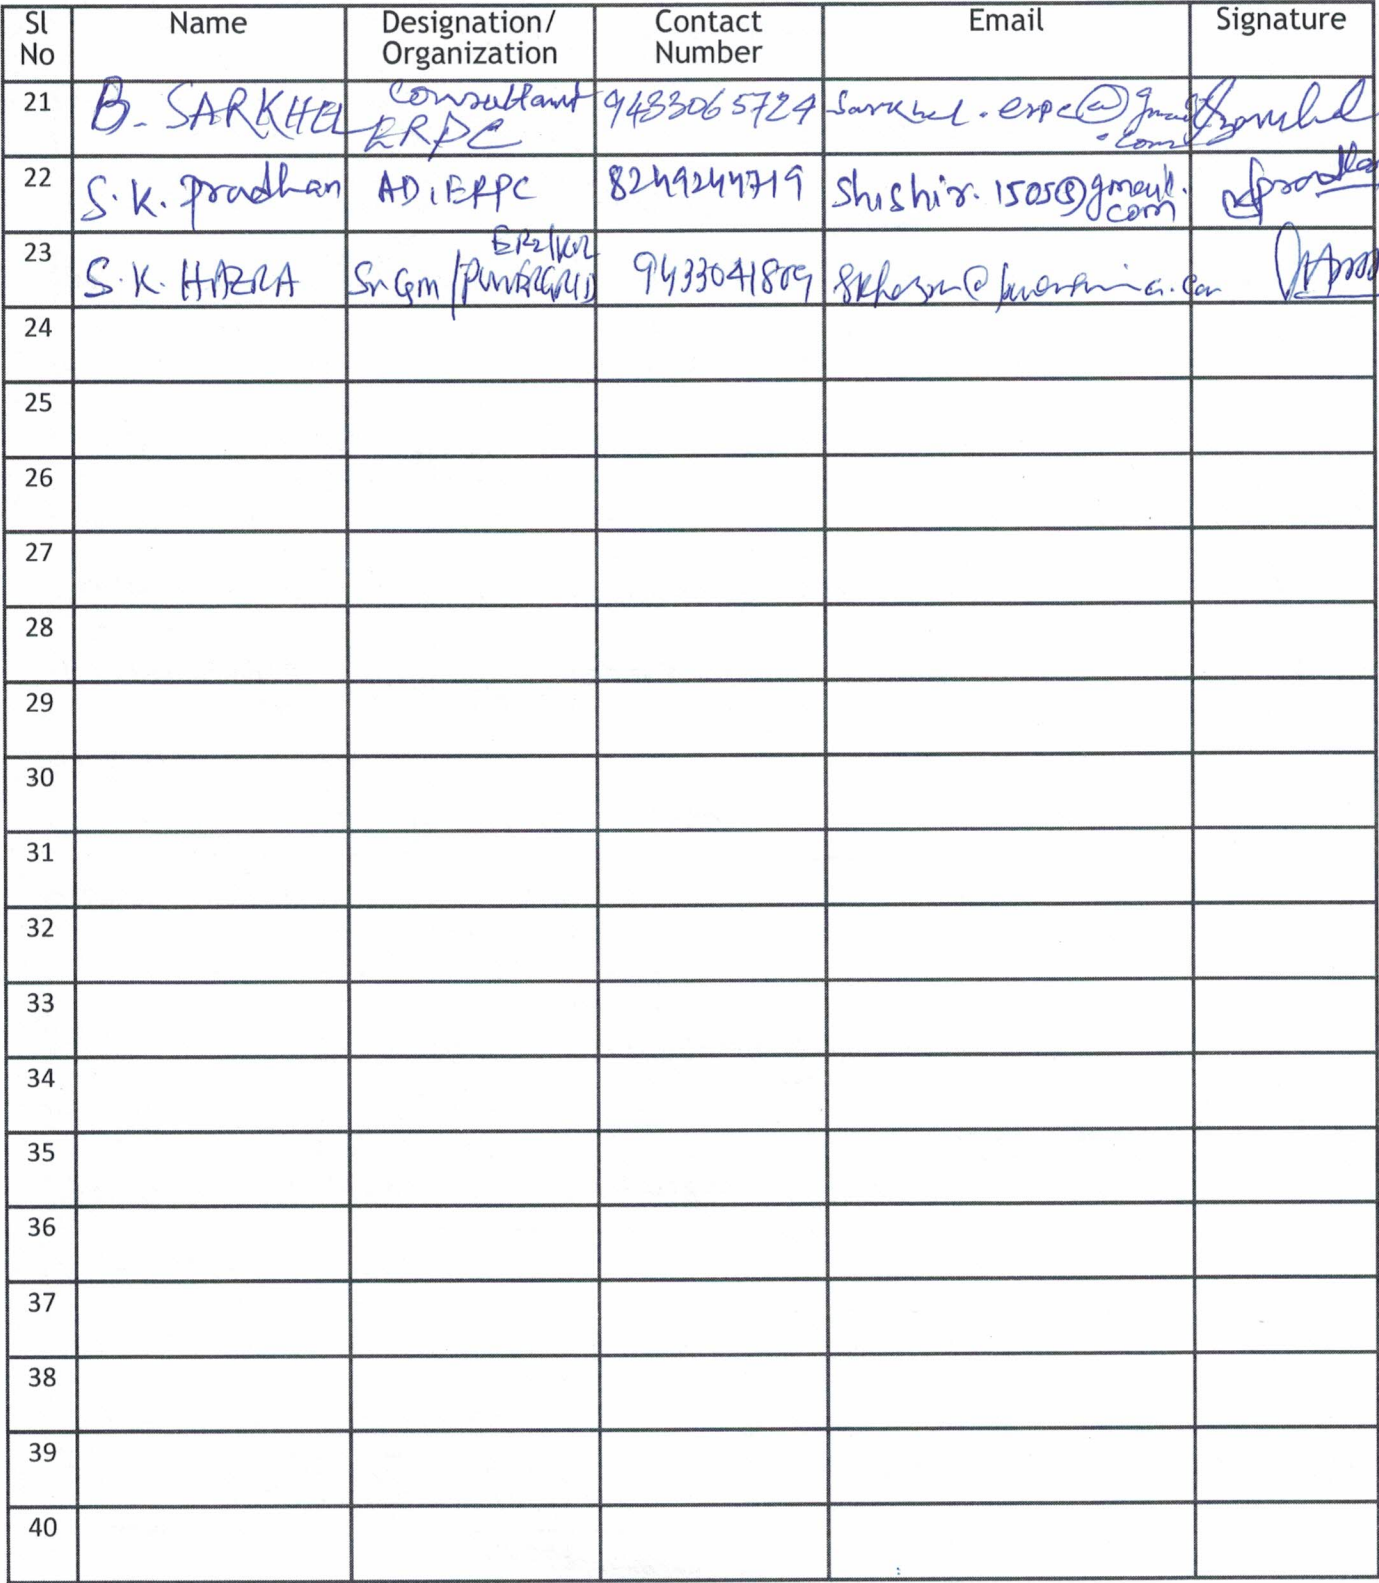 Sl No Name Designation/ Organization Contact Number Email Signature
21 B. SARKHEL Consultant ERPC 9433065724 Sarkhel.erpc@gmail.com
22 S.K. Pradhan AD, ERPC 8249244719 Shishir.1505@gmail.com
23 S.K. HAZRA Sr Gm/POWERGRID 9433041809
24
25
26
27
28
29
30
31
32
33
34
35
36
37
38
39
40